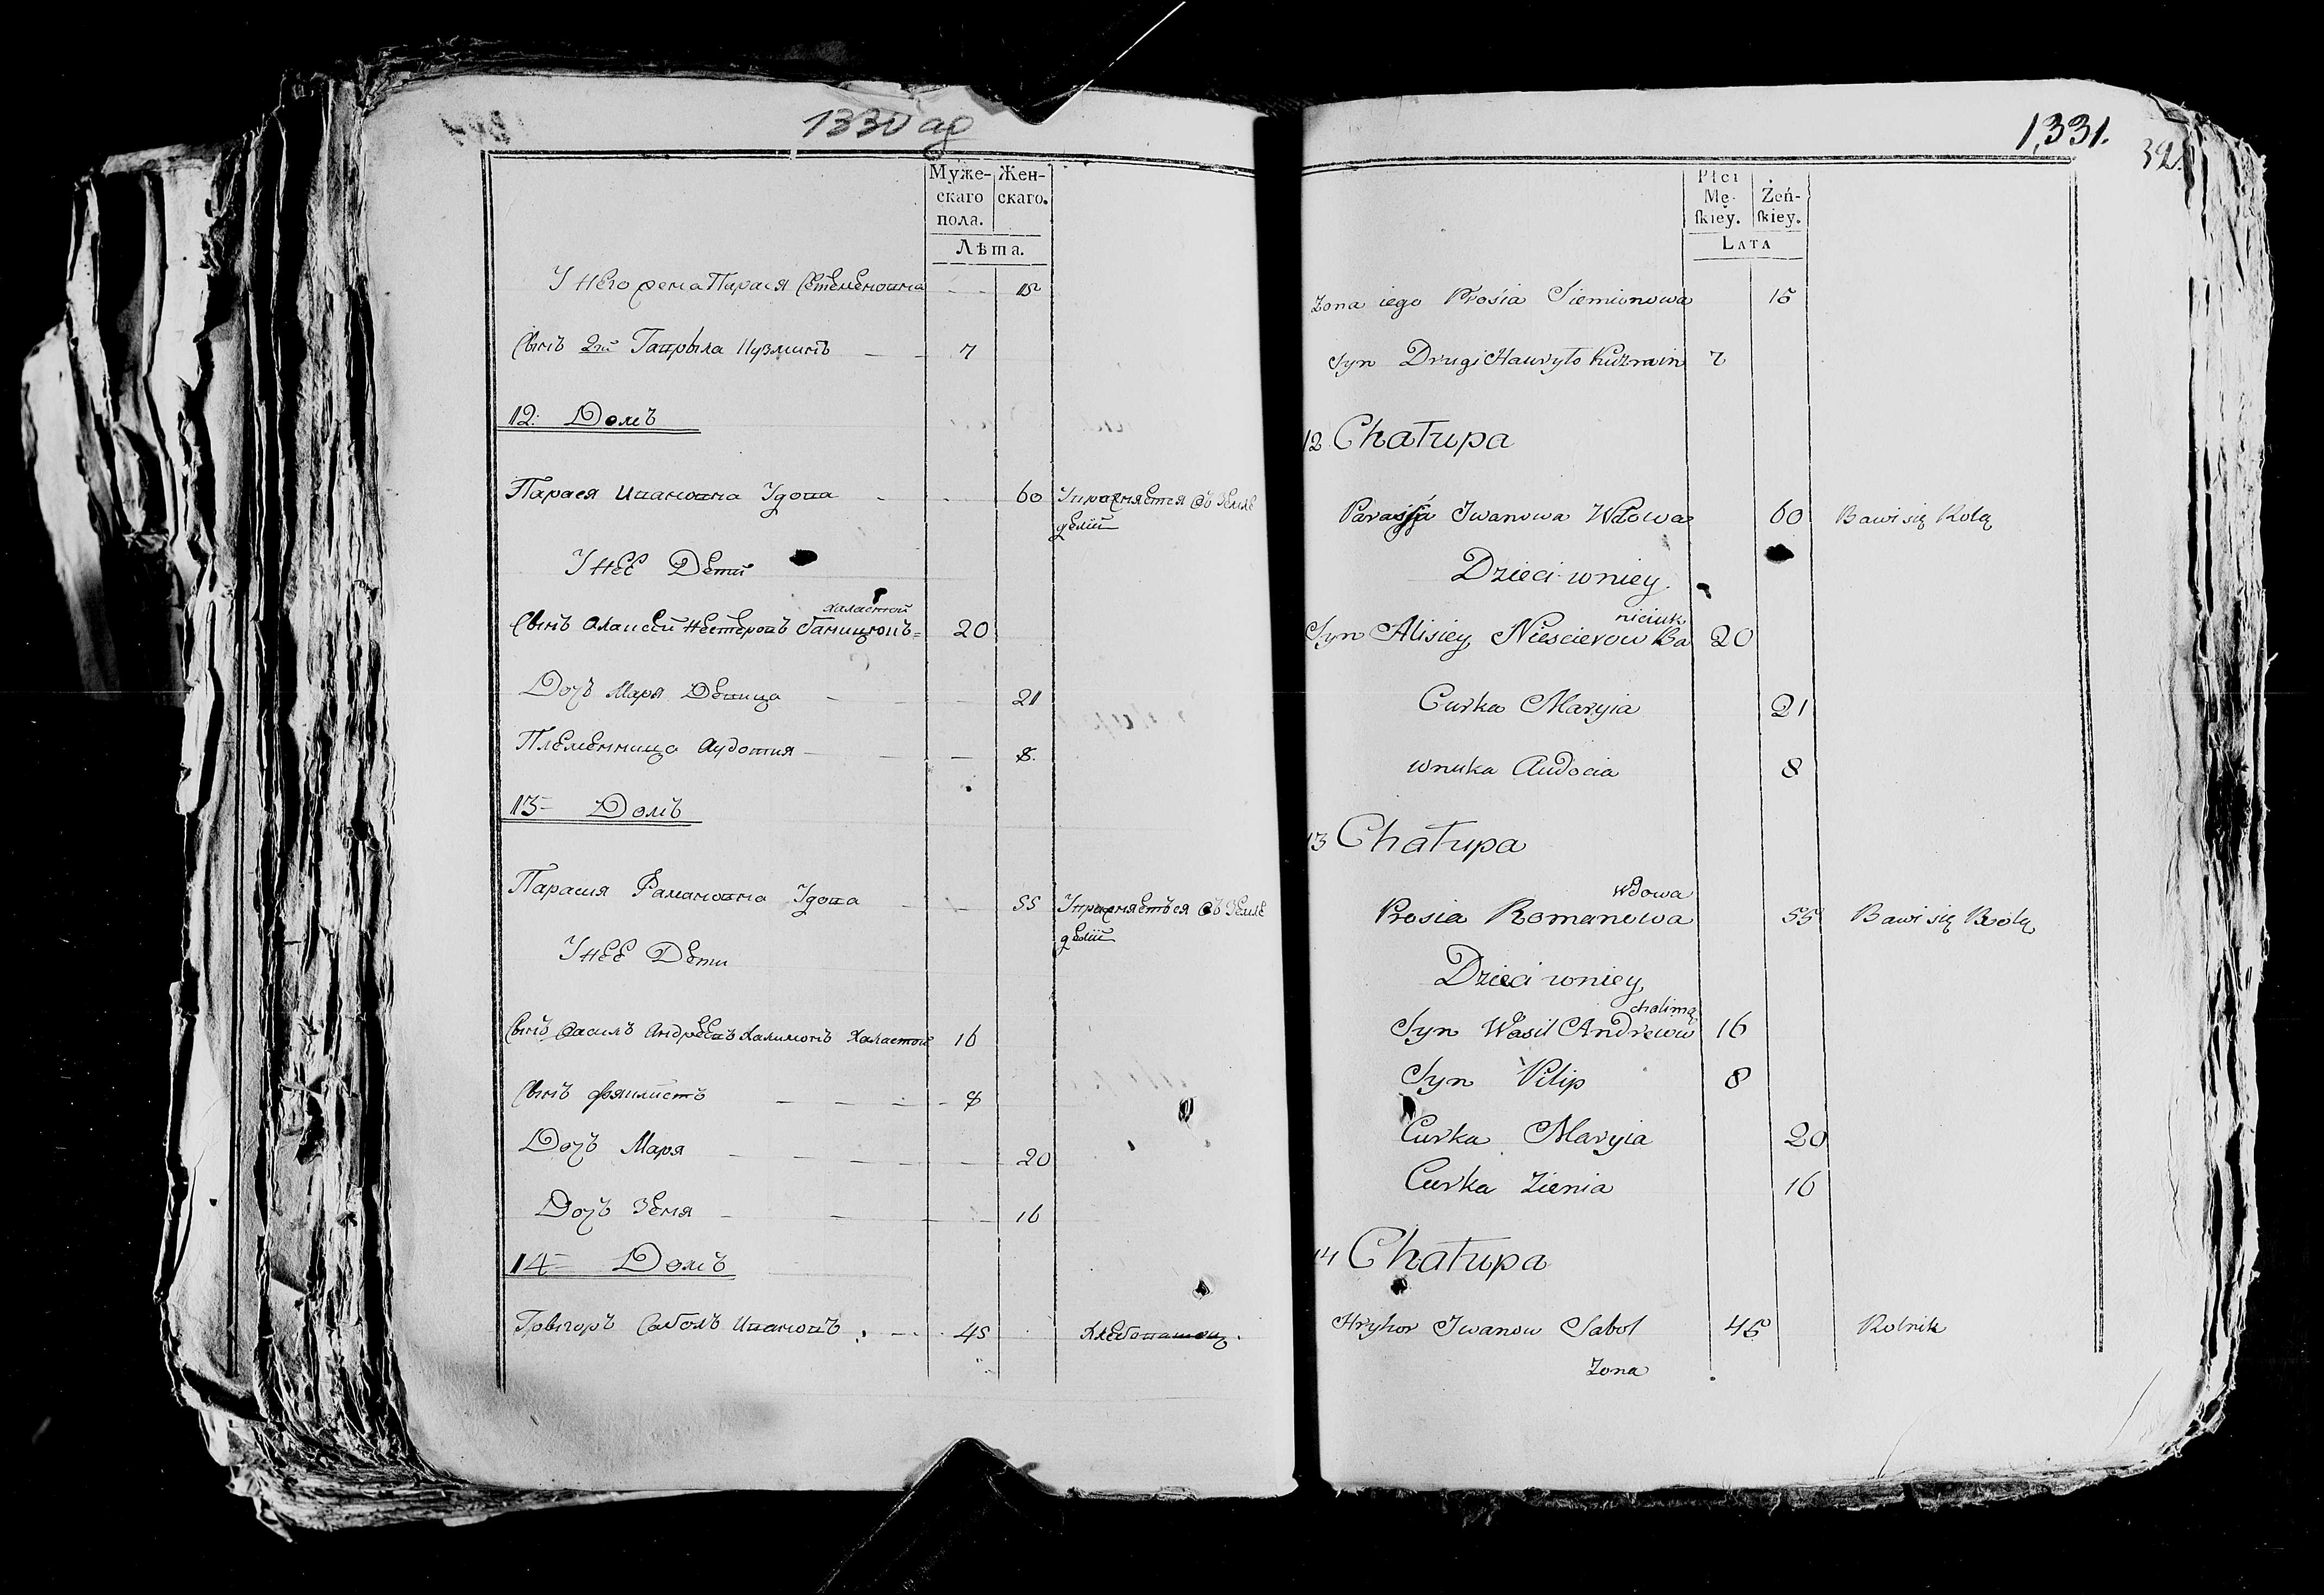 1330 ад
Муже-
скаго
пола.
Жен-
скаго.
Лѣта.
У него жена Парася Сетеменоина 15
Сынъ 2й Гаврыла Кузминъ 7
12. Домъ
Парася Ивановна Удова 60 Упражняется въ Земле
делiи
У нее Дети
халастой
Сынъ Алаисей Нестеровъ Баницюцъ 20
Дочъ Маря Девица 21
Племенница Аудотия 8
13 Домъ
Парасия Рамановна Удова 55 Упражняеться въ Земле
делiи
У нее Дети
Сынъ Василъ Андреевъ Халимонъ Халастой 16
Сынъ Фяилистъ 8
Дочъ Маря 20
Дочъ Зеня 16
14 Домъ
Грыгоръ Саболъ Ивановъ 45 Хлебопашец.
1331.
32.
Płci
Mę-
ſkiey.
Żeń-
ſkiey.
LATA
Żona iego Prosia Siemionowa 15
Syn Drugi Hauryło Kuzmin 7
12 Chałupa
Parasja Iwanowa Wdowa 60 Bawi się Rolą
Dzieci w niey
niciuk
Syn Alisiey Niescierow Ba 20
Curka Maryia 21
wnuka Audocia 8
13 Chałupa
Wdowa
Prosia Romanowa 55 Bawi się Rolą
Dzieci w niey
chalima
Syn Wasil Andreow 16
Syn Pilip 8
Curka Maryia 20
Curka Zienia 16
14 Chałupa
Hryhor Iwanow Sabol 45 Rolnik
Żona